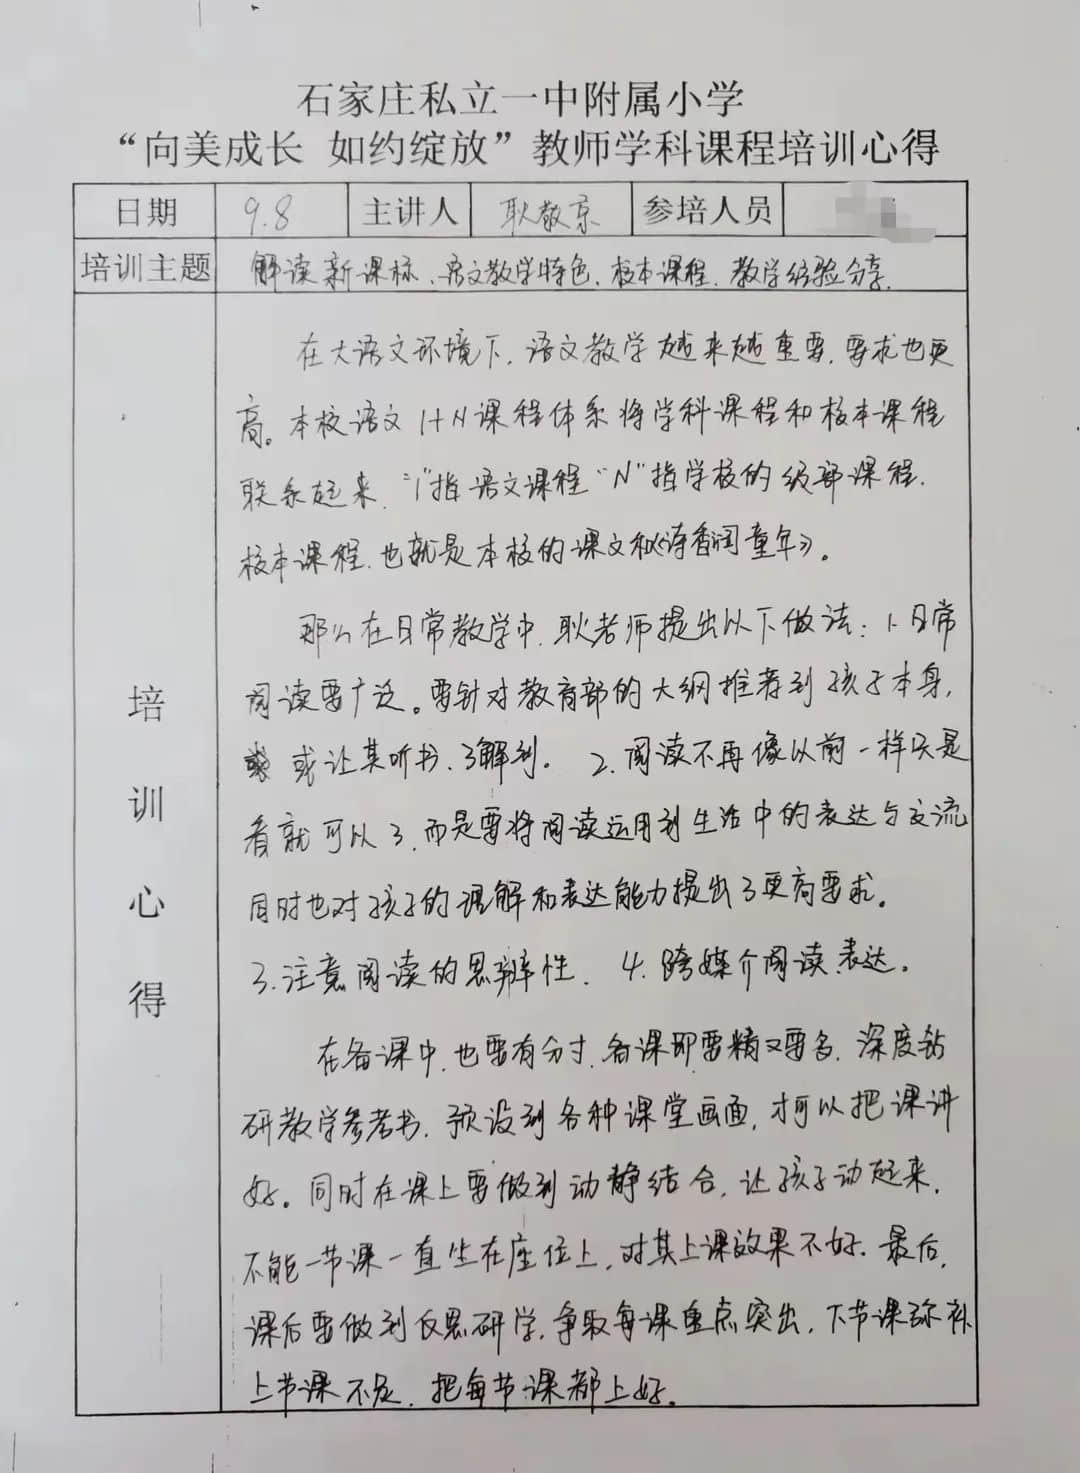 石家庄私立一中附属小学
“向美成长 如约绽放”教师学科课程培训心得
日期 9.8 主讲人 耿敬京 参培人员
培训主题 解读新课标、语文教学特色、校本课程、教学经验分享.
培训心得
在大语文环境下,语文教学越来越重要,要求也更
高。本校语文1+N课程体系将学科课程和校本课程
联系起来,“1”指语文课程“N”指学校的级部课程.
校本课程,也就是本校的课文和《诗香润童年》。
那么在日常教学中,耿老师提出以下做法:1.日常
阅读要广泛。要针对教育部的大纲推荐到孩子本身,
或让其听书、了解到。 2.阅读不再像以前一样只是
看就可以了,而是要将阅读运用到生活中的表达与交流
同时也对孩子的理解和表达能力提出了更高要求。
3.注意阅读的思辨性. 4.跨媒介阅读、表达。
在备课中,也要有分寸,备课即要精又要多,深度钻
研教学参考书,预设到各种课堂画面,才可以把课讲
好。同时在课上要做到动静结合,让孩子动起来,
不能一节课一直坐在座位上,对其上课效果不好.最后,
课后要做到反思研学,争取每课重点突出,下节课弥补
上节课不足,把每节课都上好。